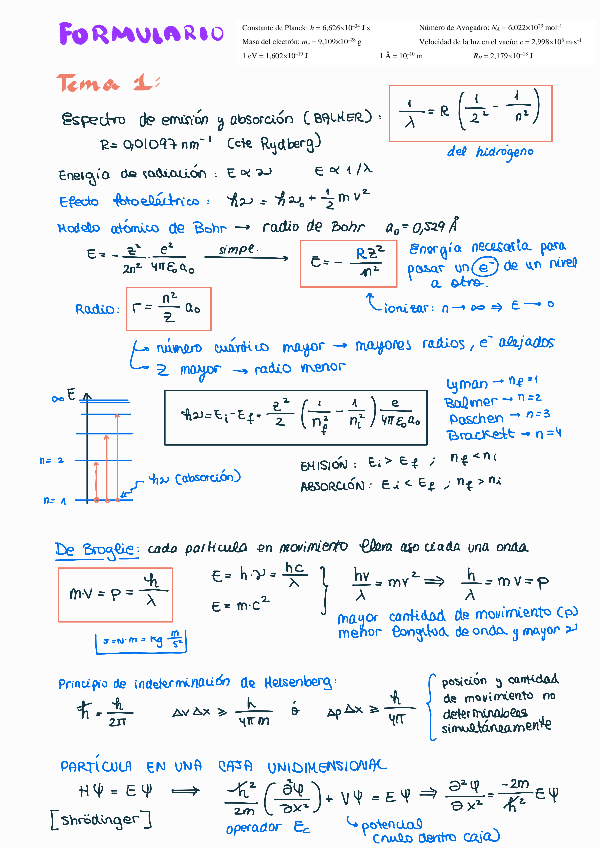 FORMULARIO
Constante de Planck: h = 6,626×10⁻³⁴ J s
Número de Avogadro: N_A = 6,022×10²³ mol⁻¹
Masa del electrón: mₑ = 9,109×10⁻²⁸ g
Velocidad de la luz en el vacío: c = 2,998×10⁸ m s⁻¹
1 eV = 1,602×10⁻¹⁹ J
1 Å = 10⁻¹⁰ m
R_H = 2,179×10⁻¹⁸ J
Tema 1:
Espectro de emisión y absorción (BALMER): 1/λ = R (1/2² - 1/n²)
R= 0,01097 nm⁻¹ (cte Rydberg)
del hidrógeno
Energía de radiación: E ∝ ν E ∝ 1/λ
Efecto fotoeléctrico: hν = hν₀ + 1/2 m v²
Modelo atómico de Bohr → radio de Bohr a₀ = 0,529 Å
E = - z²/2n² · e²/4πε₀a₀ simpl. → E = - Rz²/n²
Energía necesaria para
pasar un e⁻ de un nivel
a otro.
Radio: r = n²/z a₀
ionizar: n → ∞ ⇒ E → 0
número cuántico mayor → mayores radios, e⁻ alejados
z mayor → radio menor
∞ E
hν = Eᵢ - E_f = z²/2 (1/n_f² - 1/nᵢ²) e/4πε₀a₀
Lyman → n_f = 1
Balmer → n=2
Paschen → n=3
Brackett → n=4
n= 2
hν (absorción)
n= 1
EMISIÓN: Eᵢ > E_f ; n_f < nᵢ
ABSORCIÓN: Eᵢ < E_f ; n_f > nᵢ
De Broglie: cada partícula en movimiento lleva asociada una onda
m·v = p = h/λ
E = h·ν = hc/λ
E = m·c²
hv/λ = mv² ⟹ h/λ = m v = p
mayor cantidad de movimiento (p)
menor longitud de onda y mayor ν
J = N·m = kg m/s²
Principio de indeterminación de Heisenberg:
ħ = h/2π Δv Δx ≥ h/4πm ó Δp Δx ≥ h/4π
posición y cantidad
de movimiento no
determinables
simultáneamente
PARTÍCULA EN UNA CAJA UNIDIMENSIONAL
Hψ = Eψ ⟹ ħ²/2m (∂²ψ/∂x²) + Vψ = Eψ ⇒ ∂²ψ/∂x² = -2m/ħ² Eψ
[Shrödinger]
operador Ec
potencial
(nulo dentro caja)